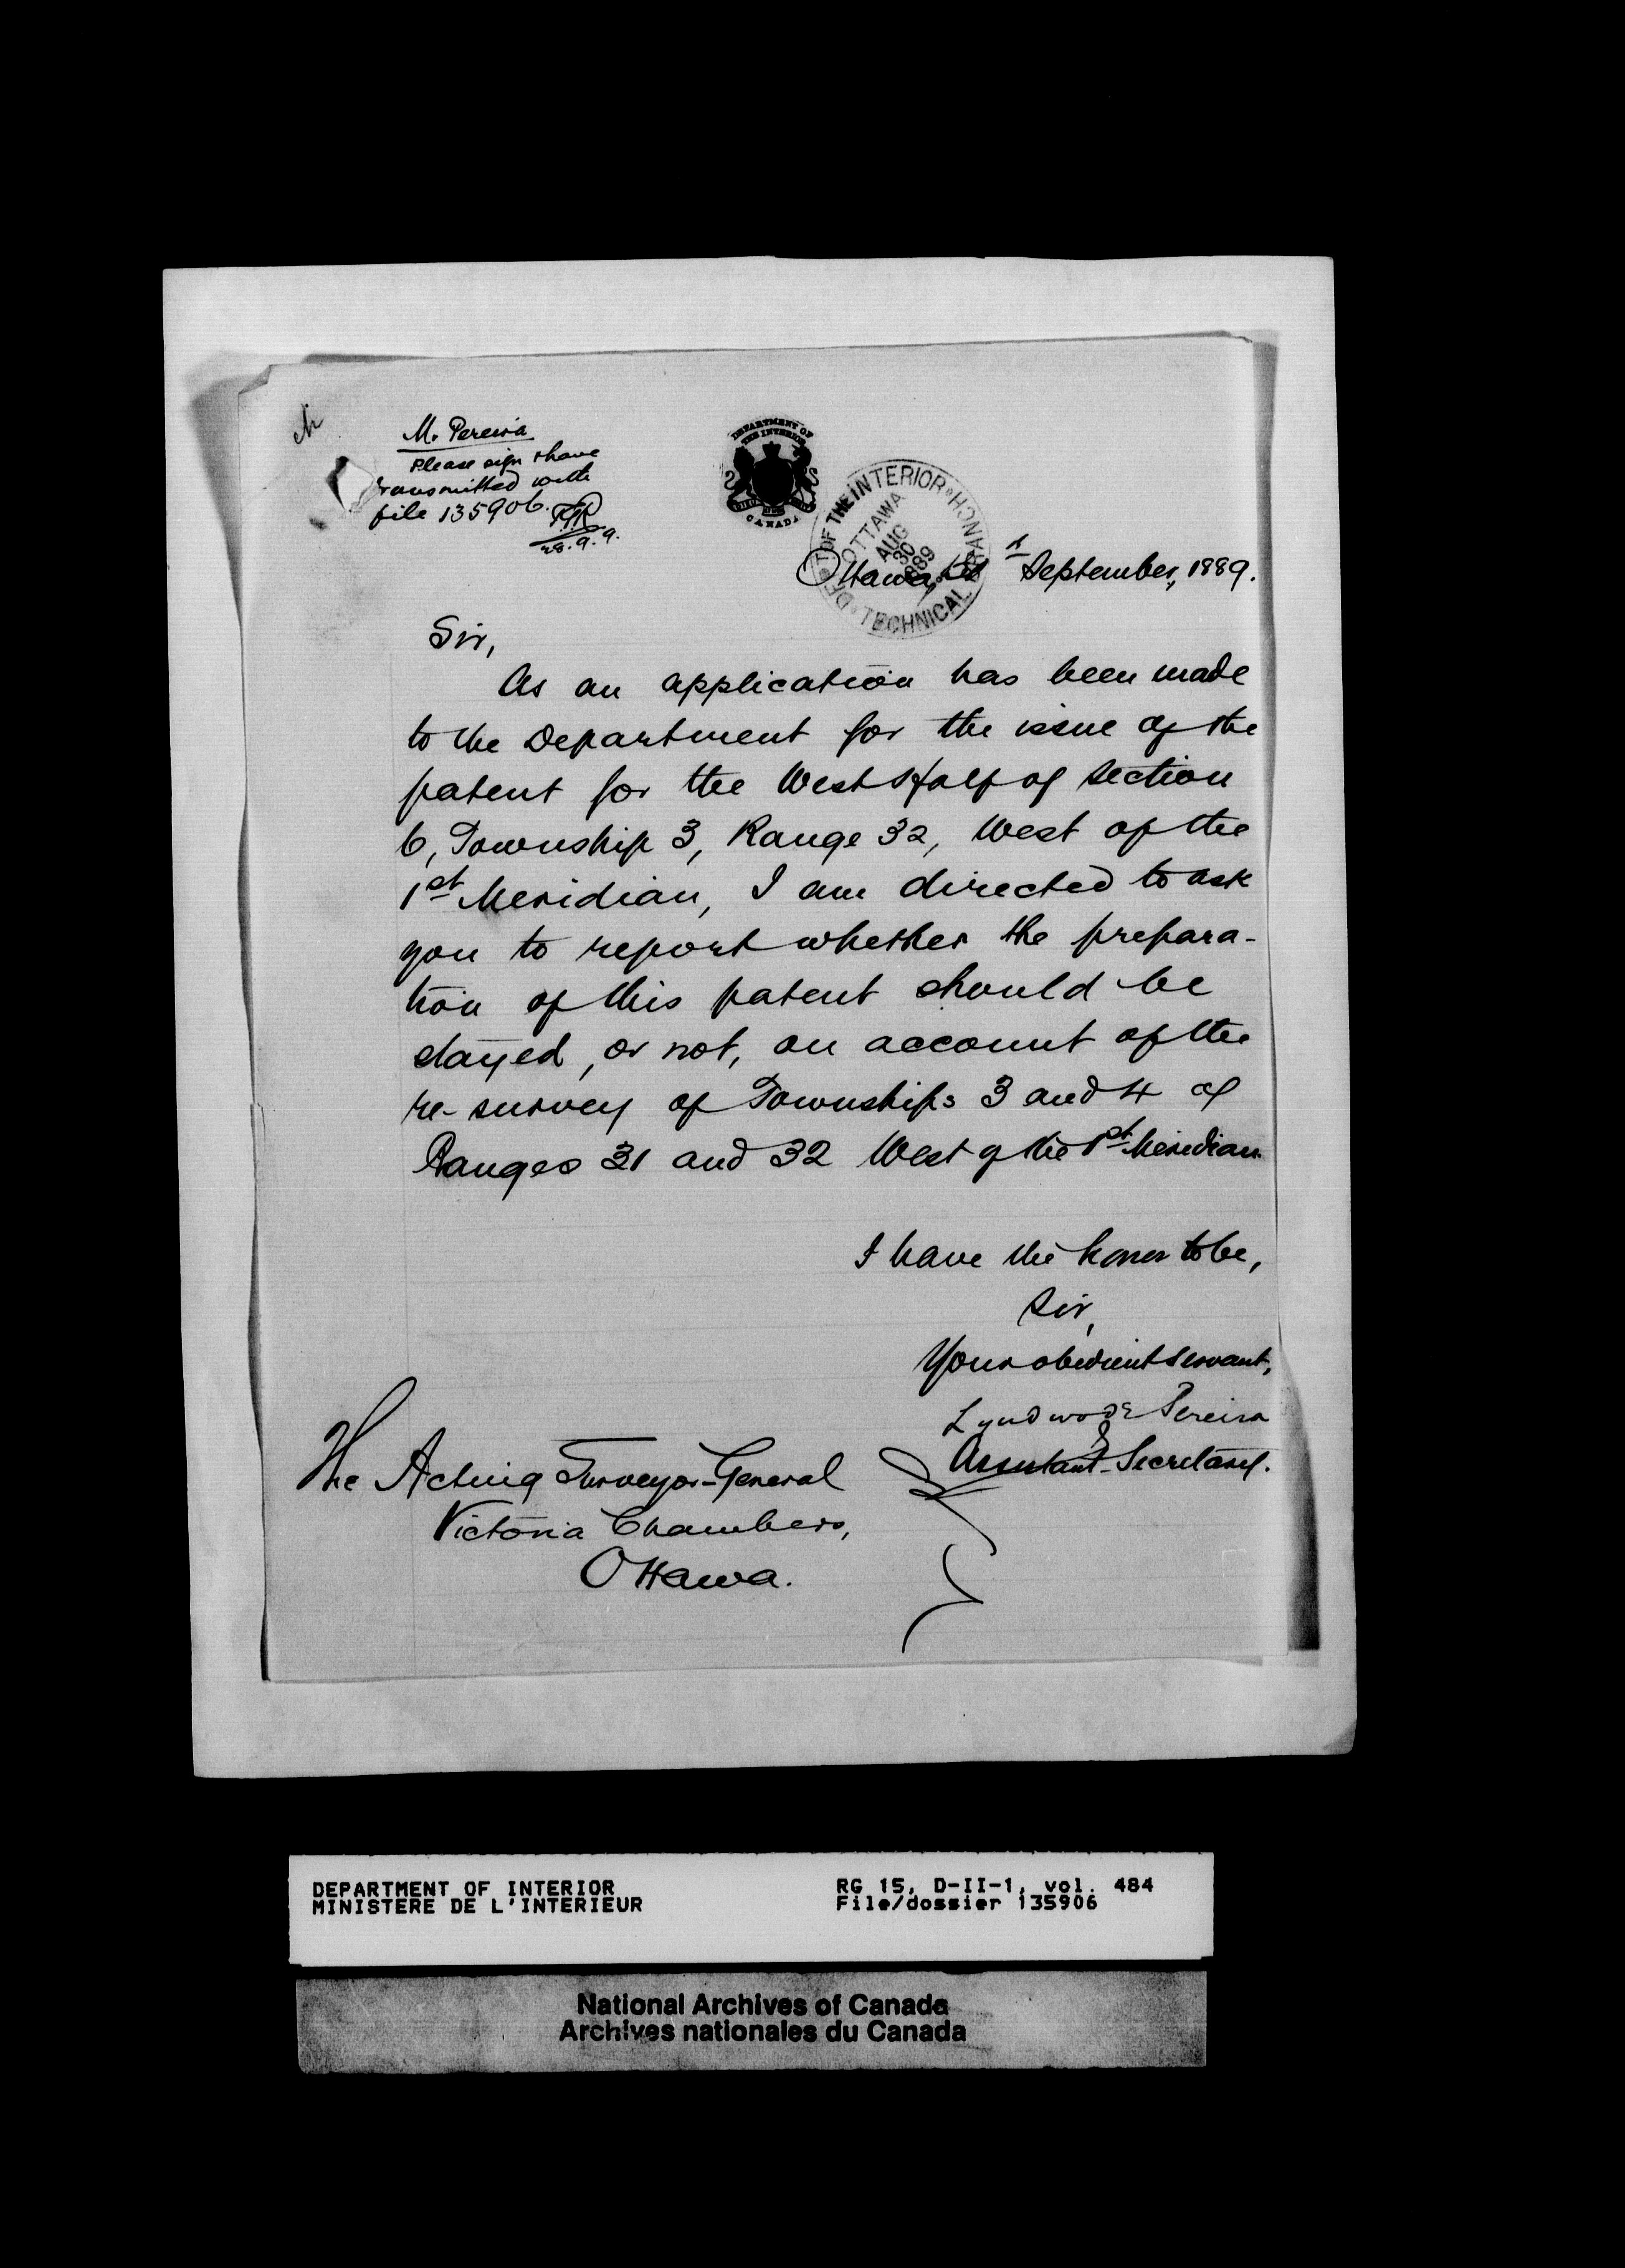 M. Pereira
Please sign & have
transmitted with
file 135906.
28.9.9.
DEPARTMENT OF
THE INTERIOR
CANADA
DEPT OF THE INTERIOR
OTTAWA
AUG
30
1889
TECHNICAL BRANCH
Ottawa, September, 1889.
Sir,
As an application has been made
to the Department for the issue of the
patent for the West Half of Section
6, Township 3, Range 32, West of the
1st Meridian, I am directed to ask
you to report whether the prepara-
tion of this patent should be
stayed, or not, on account of the
re-survey of Townships 3 and 4 of
Ranges 31 and 32 West of the 1st Meridian.
I have the honor to be,
Sir,
Your obedient servant,
Lyndwode Pereira
Assistant Secretary.
The Acting Surveyor-General
Victoria Chambers,
Ottawa.
DEPARTMENT OF INTERIOR
MINISTERE DE L'INTERIEUR
RG 15, D-II-1, vol. 484
File/dossier 135906
National Archives of Canada
Archives nationales du Canada